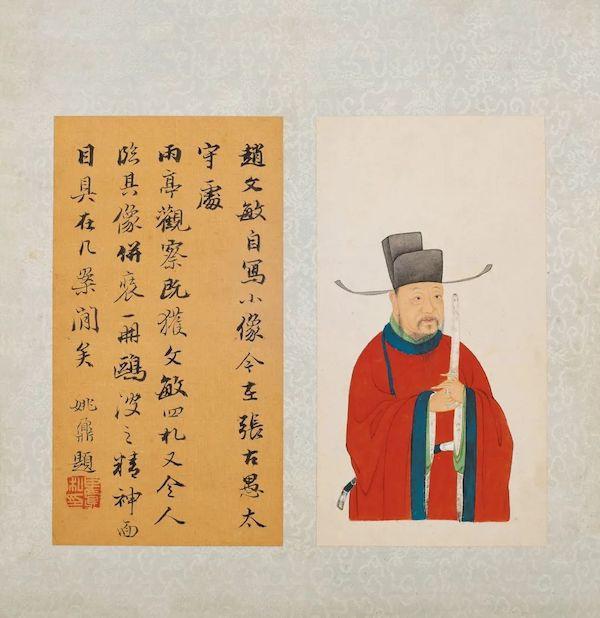 趙文敏自寫小像今在張古愚太
守處
雨亭觀察既獲文敏四札又令人
臨其像併裒一冊鷗波之精神面
目具在几案閒矣 姚鼐題